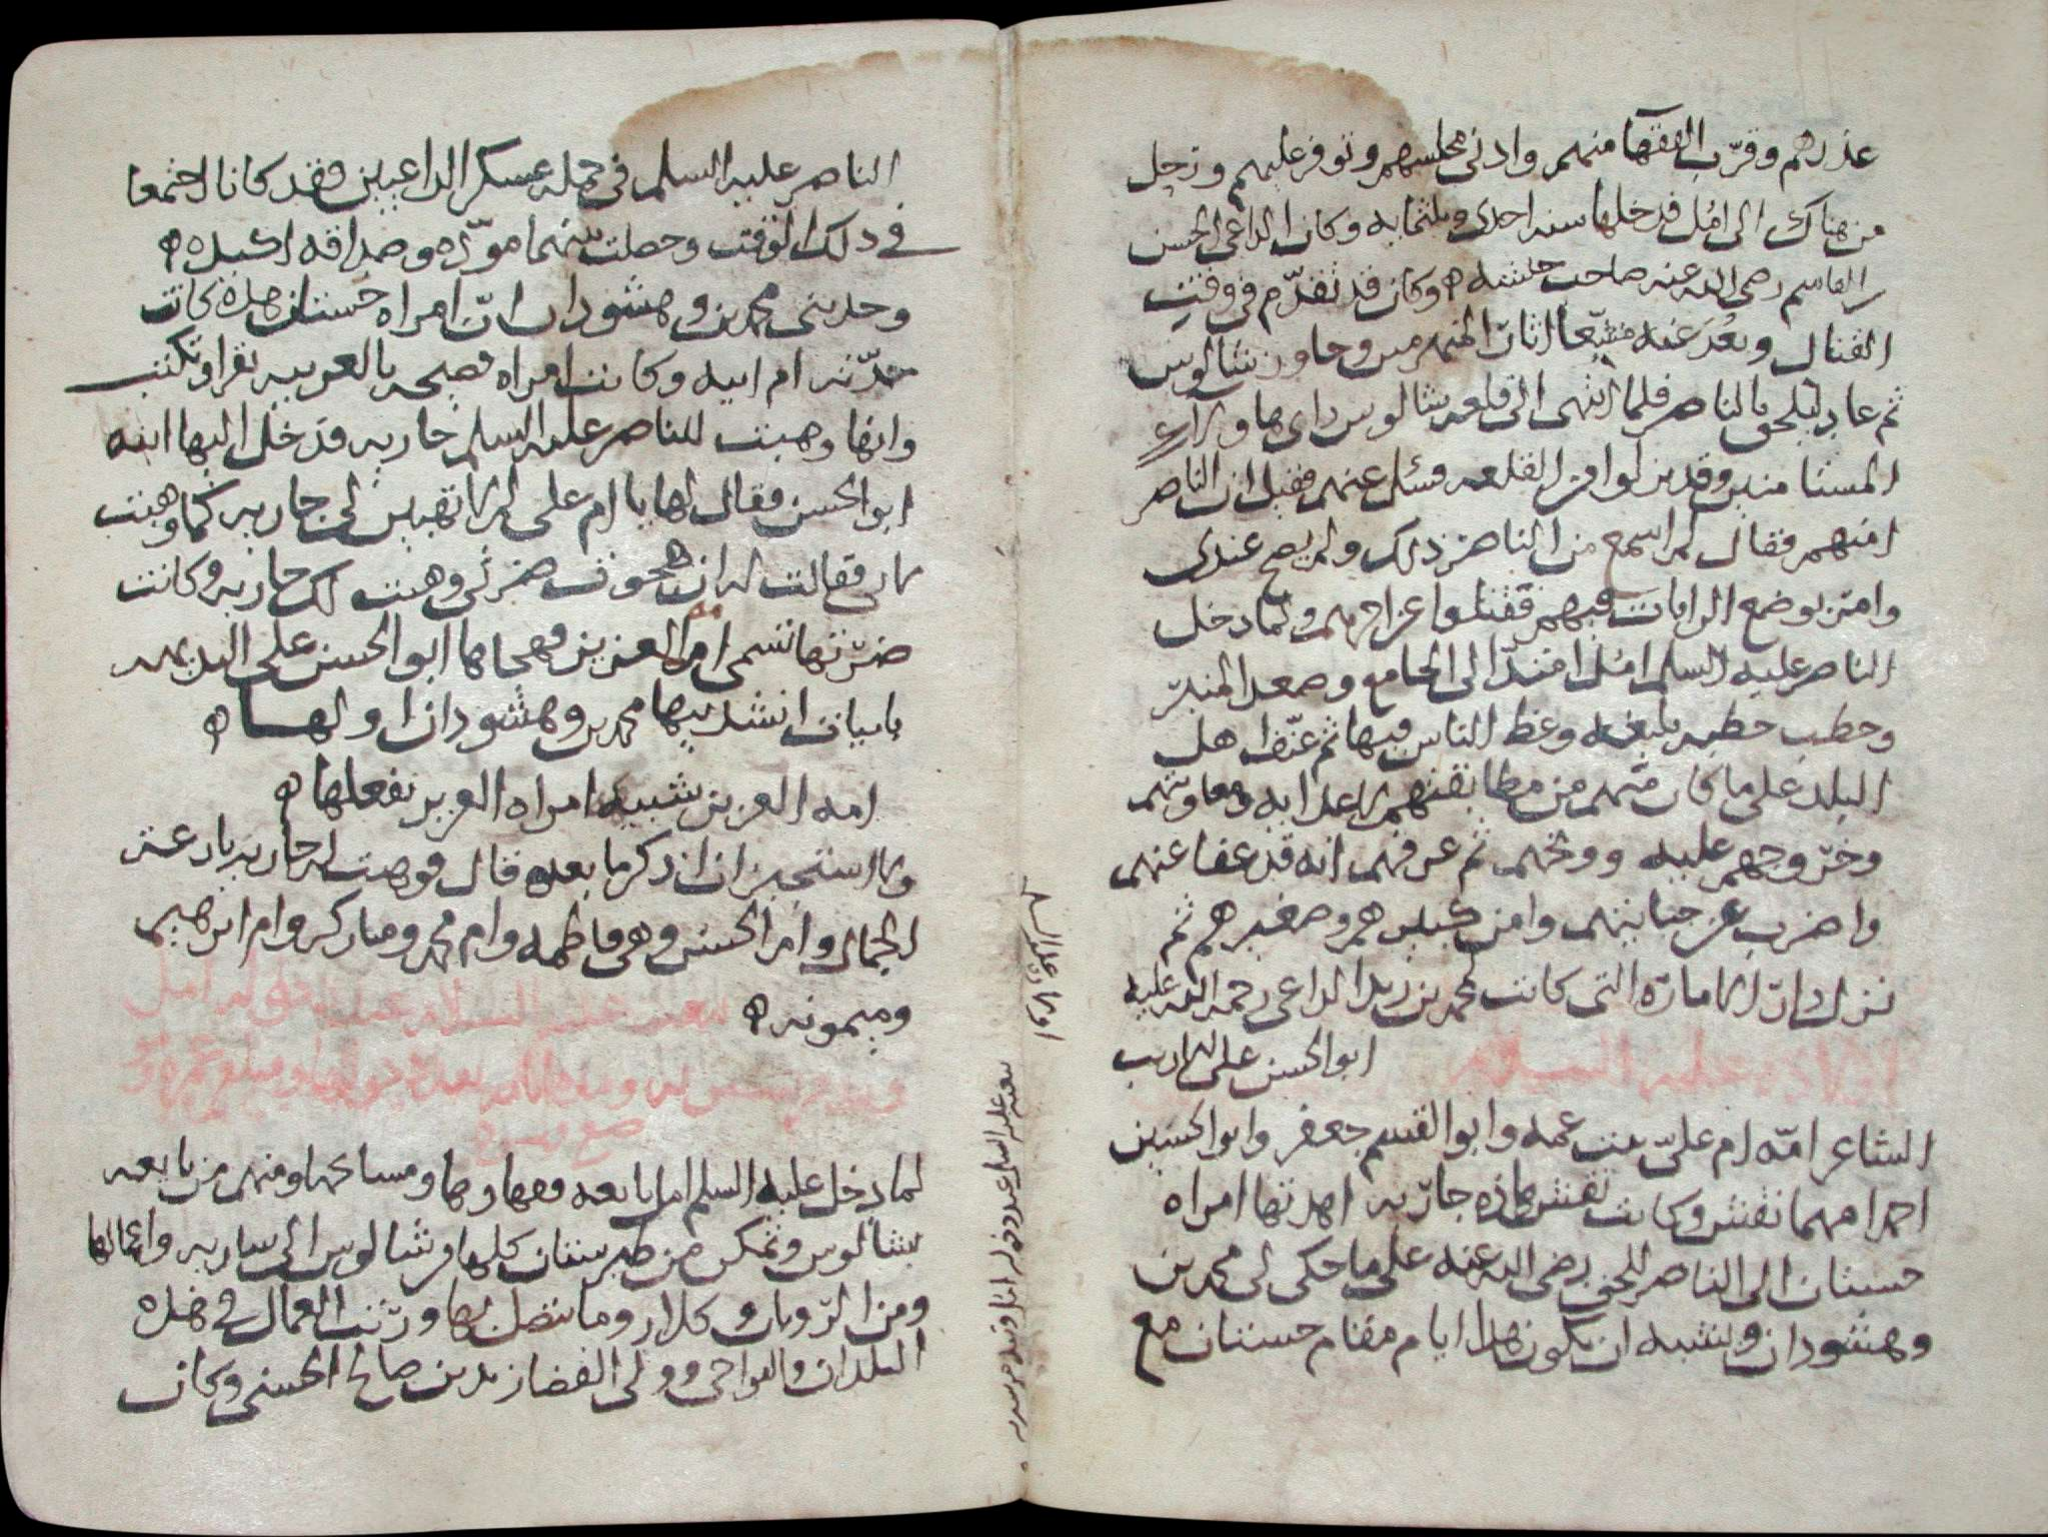 عذرهم وقرّب الفقهآ منهم وادنى مجلسهم وتوفر عليهم ورحل
من هناك الى امُل فدخلها سنه احدى وثلثمايه وكان الداعى الحسن
بن القاسم رضى الله عنه صاحب جيشه ه وكان قد تقدّم فى وقت
القتال وبعُدَ عنه متبعا اثار المنهزمين وجاوز شالوس
ثم عاد ليلحق بالناصر فلما انتهى الى قلعه شالوس راى هاولاء
المستامنين وقد نزلوا من القلعه فسئل عنهم فقيل ان الناصر
امنهم فقال لم اسمع من الناصر ذلك ولم يصح عندى
وامر بوضع الرايات فيهم فقتلوا عن اخرهم ولما دخل
الناصر عليه السلم امُل امتدّ الى الجامع وصعد المنبر
وخطب خطبه بليغه وعظ الناس فيها ثم عنّف اهل
البلد على ما كان منهم من مطابقتهم لاعدايه ومعاونتهم
وخروجهم عليه ووبخهم ثم عرفهم انه قد عفا عنهم
واضرب عن جنايتهم وامن كبيرهم وصغيرهم ثم
نزل دار الاماره التى كانت لمحمد بن زيد الداعى رحمه الله عليه
اولاده عليه السلام ابو الحسن على الاديب
الشاعر امّه ام علىّ بنت عمه وابو القسم جعفر وابو الحسين
احمد امهما نقش وكانت نقش هذه جاريه اهدتها امراه
حسنان الى الناصر للحق رضى الله عنه على ما حكى لى محمد بن
وهشودان ويشبه ان يكون هذا ايام مقام حسنان مع
اولاده عليه السلم
الناصر عليه السلم فى جمله عسكر الداعيين فقد كانا اجتمعا
فى ذلك الوقت وحصلت بينهما مودّه وصداقه اكيده ه
وحدثنى محمد بن وهشودان انّ امراه حسنان هذه كانت
جدّته ام ابيه وكانت امراه فصيحه بالعربيه تقرا وتكتب
وانها وهبت للناصر عليه السلم جاريه فدخل اليها ابنه
ابو الحسن فقال لها يا ام على الا تهبين لى جاريه كما وهبت
لابى فقالت له ان هجوت ضرتى وهبت لك جاريه وكانت
ضرّتها تسمى امه العزيز فهجاها ابو الحسن على البديهه
بابيات انشدنيها محمد بن وهشودان اولها ه
امه العزيز شبيه امراه العزيز بفعلها ه
ولا استجيز ان اذكر ما بعده قال فوهبت له جاريه بارعة
الجمال وام الحسن وهى فاطمه وام محمد ومباركه وام ابرهيم
وميمونه ه بيعته عليه السلام عند دخوله امل
لما دخل عليه السلم امل بايعه فقهاوها ومشايخها ومنهم من بايعه
بشالوس وتمكن من طبرستان كلها من شالوس الى ساريه واعمالها
ومن الرويان وكلار وما يتصل بها ورتب العمال فى هذه
البلدان والنواحى وولى القضا زيد بن صالح الحسنى وكان